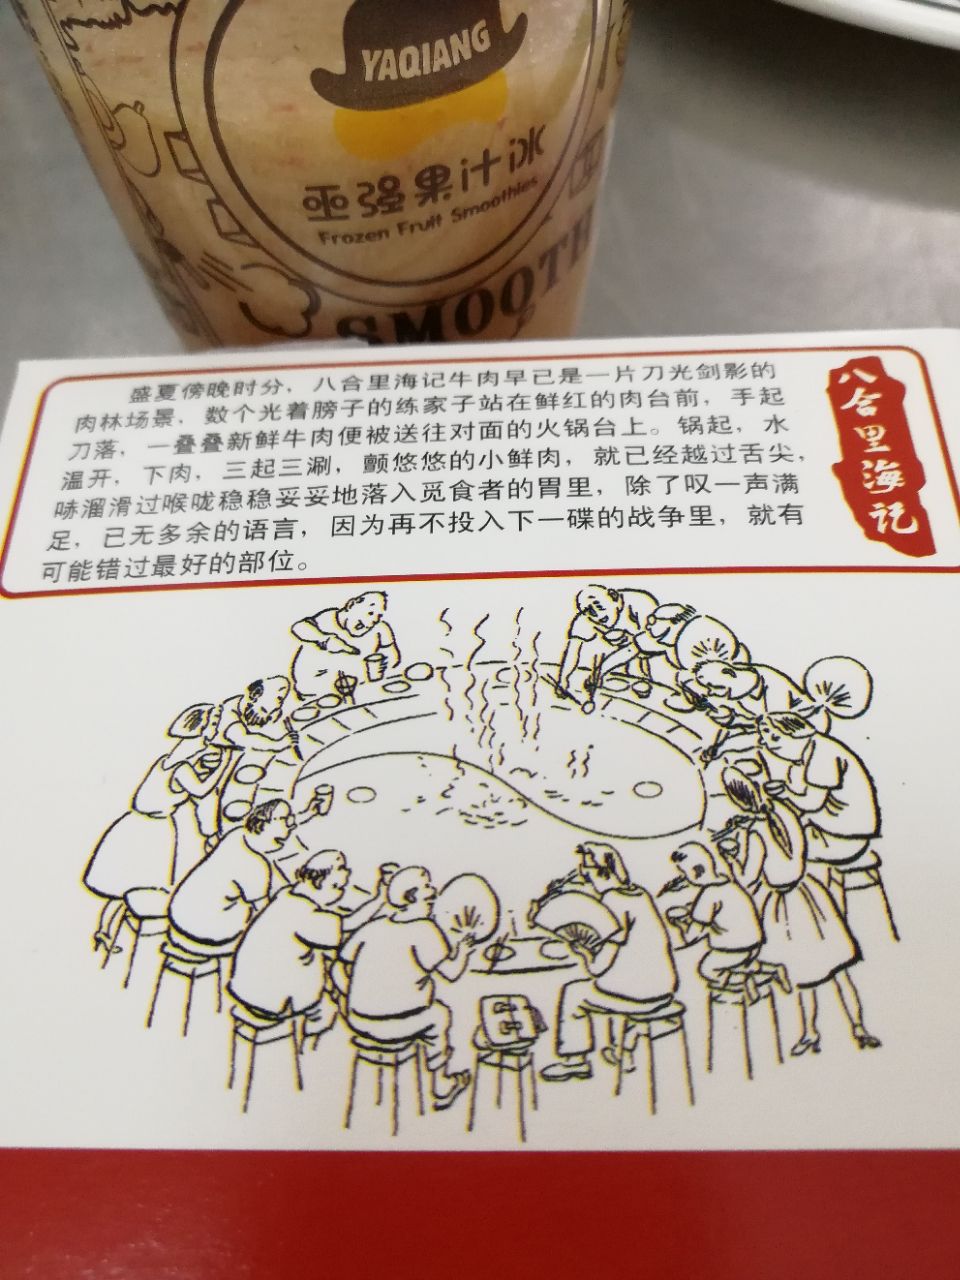 YAQIANG
亚强果汁冰
Frozen Fruit Smoothies
SMOOTH
盛夏傍晚时分，八合里海记牛肉早已是一片刀光剑影的
肉林场景，数个光着膀子的练家子站在鲜红的肉台前，手起
刀落，一叠叠新鲜牛肉便被送往对面的火锅台上。锅起，水
温开，下肉，三起三涮，颤悠悠的小鲜肉，就已经越过舌尖，
哧溜滑过喉咙稳稳妥妥地落入觅食者的胃里，除了叹一声满
足，已无多余的语言，因为再不投入下一碟的战争里，就有
可能错过最好的部位。
八合里海记